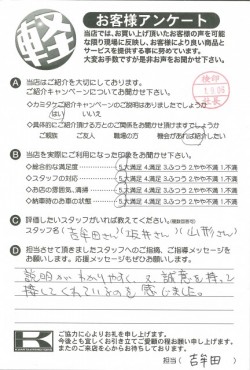 軽
お客様アンケート
当店では、お買い上げ頂いたお客様の声を可能
な限り現場に反映し、お客様により良い商品と
サービスを提供する事に努めています。
大変お手数ですが是非お声をお聞かせ下さい。
A 当店はご紹介を大切にしております。
ご紹介キャンペーンについてお聞かせ下さい。
・カミタケご紹介キャンペーンのご説明はありましたでしょうか
はい いいえ
・具体的にご紹介頂ける方とのご関係をお聞かせ頂けますでしょうか
ご親族 ご友人 職場の方 機会があれば紹介したい
B 当店を実際にご利用になった印象をお聞かせ下さい。
◇総合的な満足度 5.大満足 4.満足 3.ふつう 2.やや不満 1.不満
◇スタッフの対応 5.大満足 4.満足 3.ふつう 2.やや不満 1.不満
◇お店の雰囲気、清掃 5.大満足 4.満足 3.ふつう 2.やや不満 1.不満
◇納車時のお車の状態 5.大満足 4.満足 3.ふつう 2.やや不満 1.不満
C 評価したいスタッフがいれば教えてください。(複数回答可)
スタッフ名(吉牟田さん)(坂井さん)(山形さん)
D 担当させて頂きましたスタッフへのご指摘、ご指導メッセージを
お願いします。応援メッセージもぜひお願いします。
説明がわかりやすく、又、誠意を持って
接してくれているのを感じました。
ご協力に心よりお礼を申し上げます。
今後とも宜しくお引き立てご愛顧の程お願い申し上げます。
またのご来店を心からお待ちしております。
担当(吉牟田)